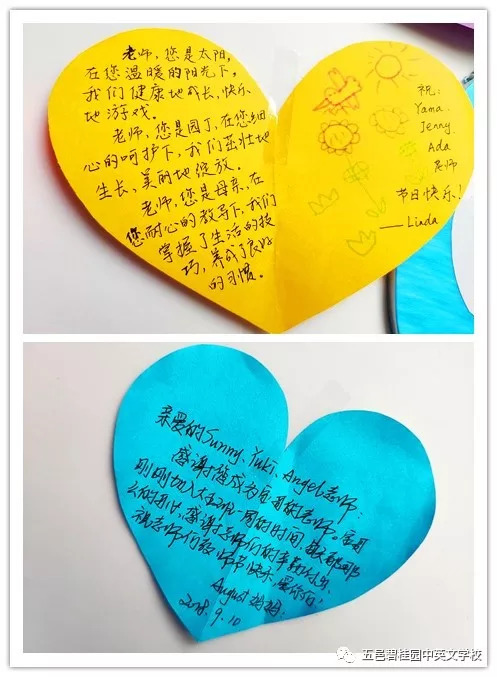 老师，您是太阳，
在您温暖的阳光下，
我们健康地成长，快乐
地游戏。
老师，您是园丁，在您细
心的呵护下，我们茁壮地
生长、美丽地绽放。
老师，您是母亲，在
您耐心的教导下，我们
掌握了生活的技
巧，养成了良好
的习惯。
祝：
Yama、
Jenny、
Ada
老师
节日快乐！
——Linda
亲爱的Sunny、Yuki、Angel老师：
感谢您成为八月的老师。八月
刚刚切入大王的一周的时间，每天都
么的开心，感谢老师们的辛勤付出。
祝老师们教师节快乐，爱你们！
August妈妈.
2018.9.10
五邑碧桂园中英文学校